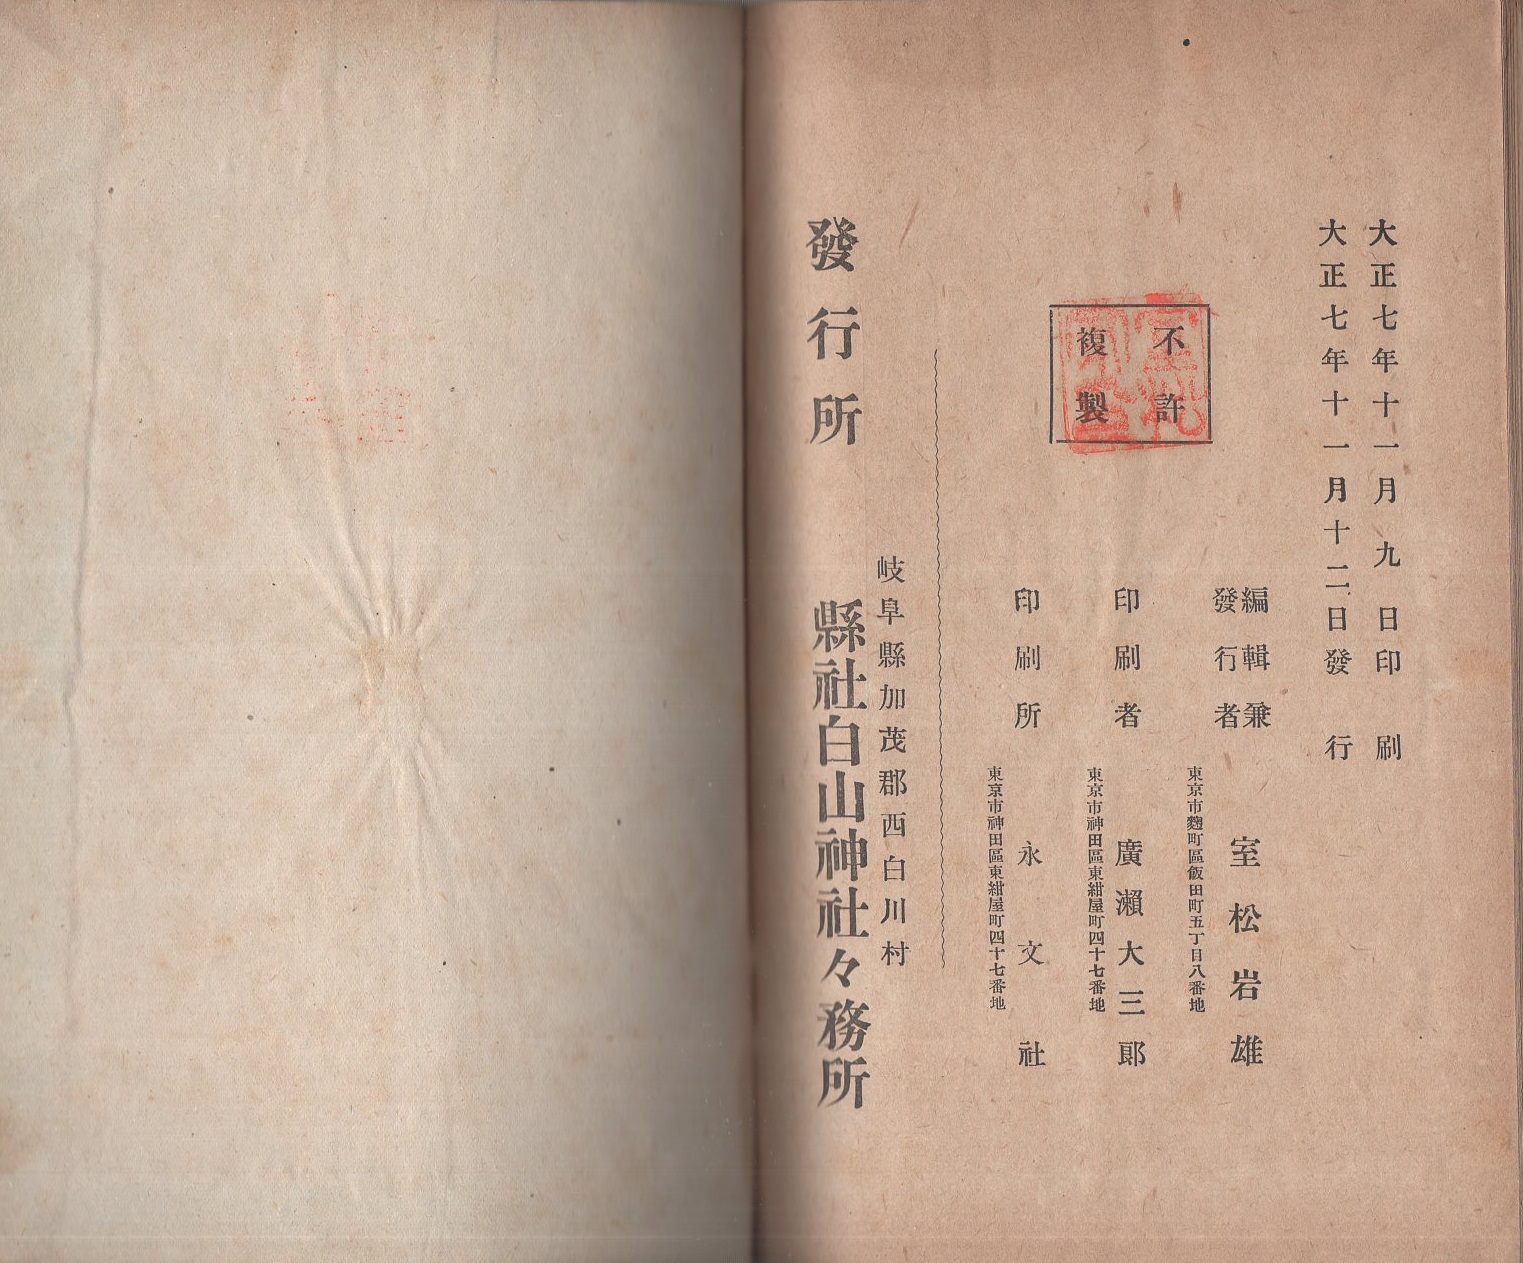 大正七年十一月九日印刷
大正七年十一月十二日發行
不許
複製
編輯兼
發行者
室松岩雄
東京市麴町區飯田町五丁目八番地
印刷者
廣瀬大三郞
東京市神田區東紺屋町四十七番地
印刷所
永文社
東京市神田區東紺屋町四十七番地
岐阜縣加茂郡西白川村
發行所
縣社白山神社々務所